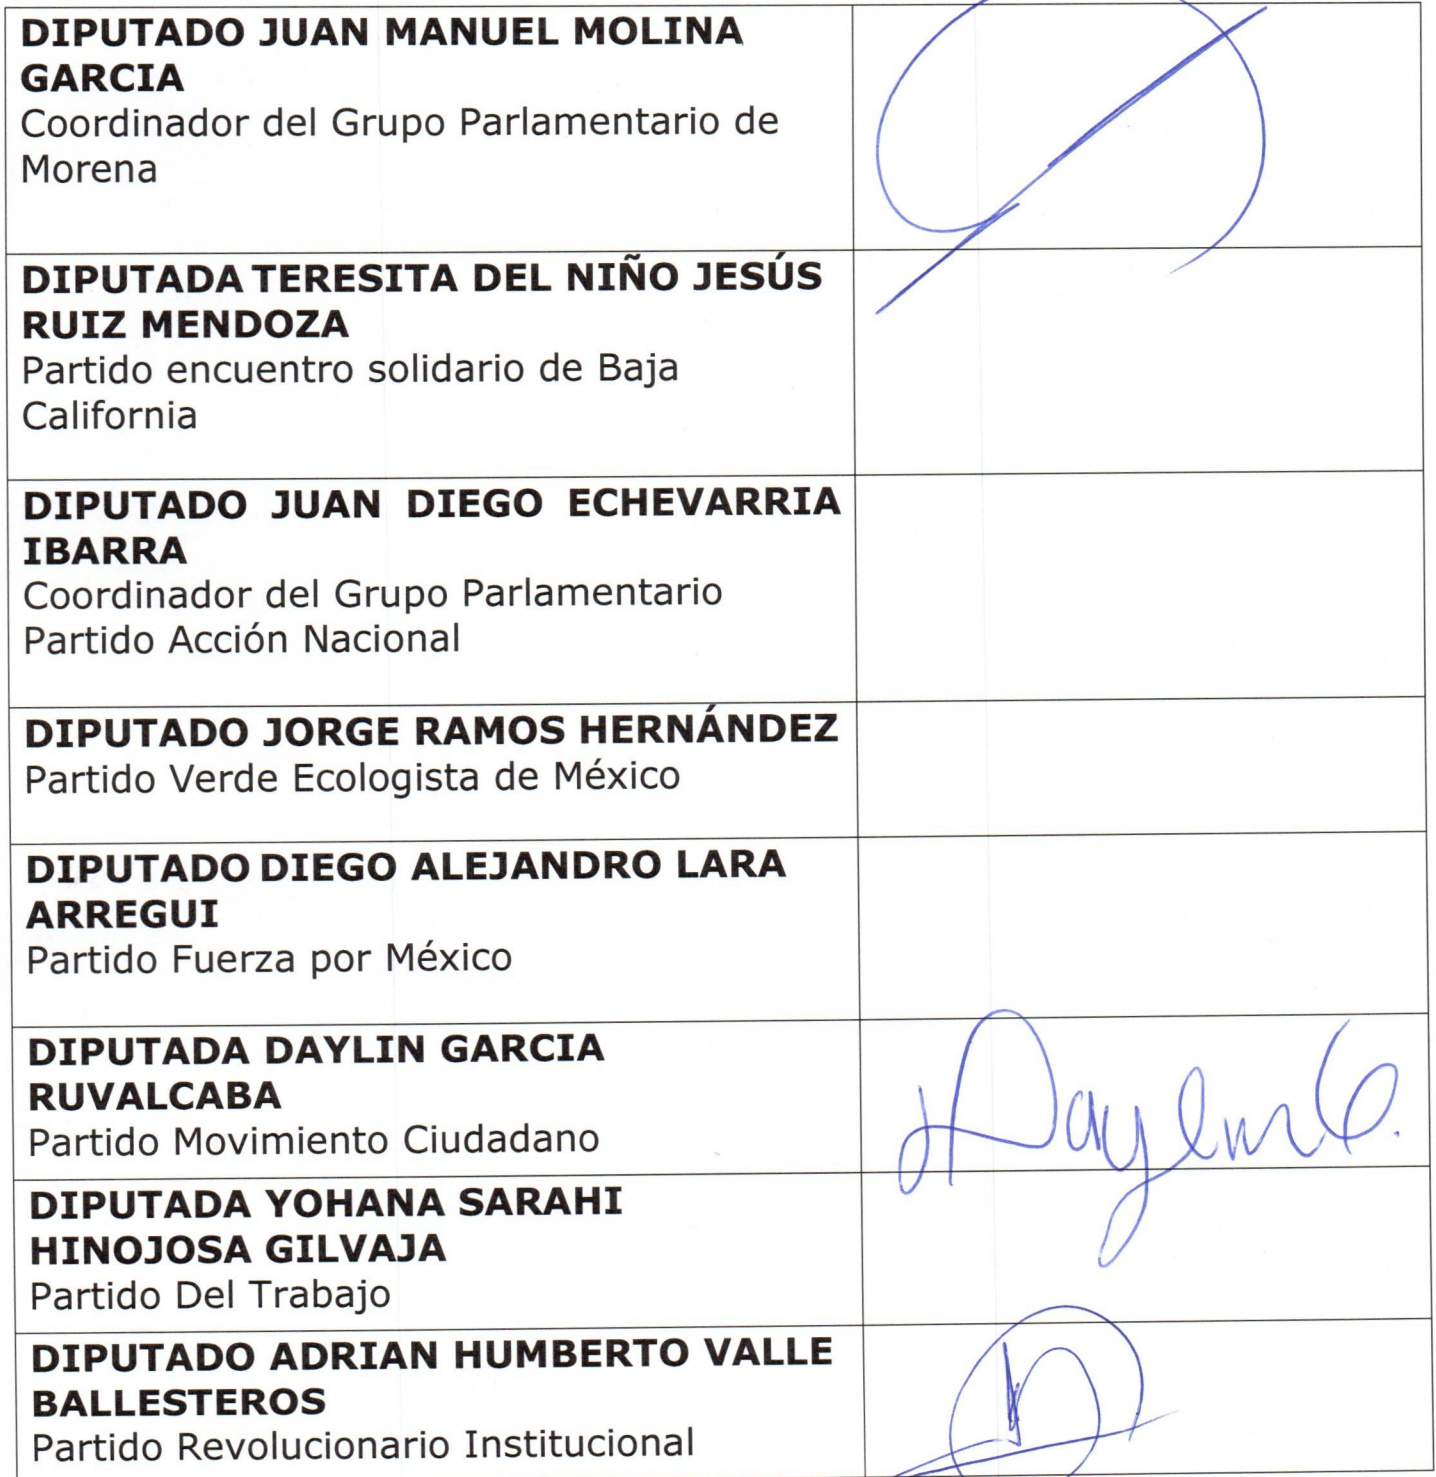 DIPUTADO JUAN MANUEL MOLINA
GARCIA
Coordinador del Grupo Parlamentario de
Morena
DIPUTADA TERESITA DEL NIÑO JESÚS
RUIZ MENDOZA
Partido encuentro solidario de Baja
California
DIPUTADO JUAN DIEGO ECHEVARRIA
IBARRA
Coordinador del Grupo Parlamentario
Partido Acción Nacional
DIPUTADO JORGE RAMOS HERNÁNDEZ
Partido Verde Ecologista de México
DIPUTADO DIEGO ALEJANDRO LARA
ARREGUI
Partido Fuerza por México
DIPUTADA DAYLIN GARCIA
RUVALCABA
Partido Movimiento Ciudadano
Daylin G.
DIPUTADA YOHANA SARAHI
HINOJOSA GILVAJA
Partido Del Trabajo
DIPUTADO ADRIAN HUMBERTO VALLE
BALLESTEROS
Partido Revolucionario Institucional